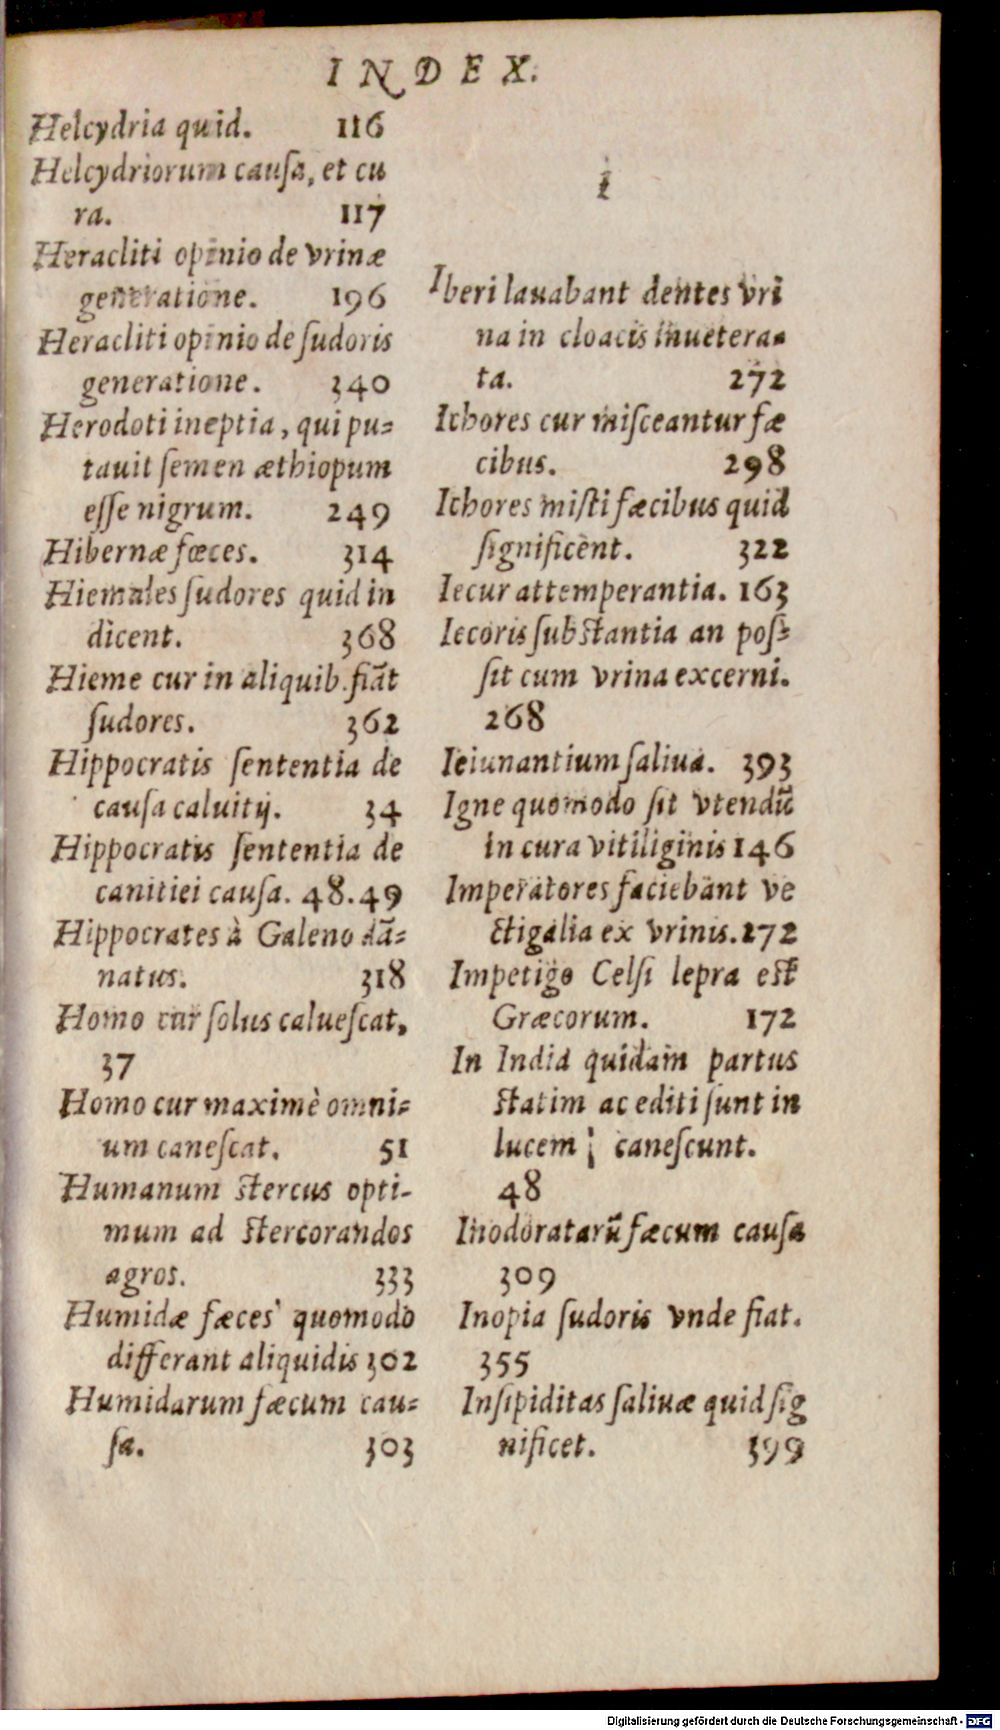 INDEX.
Helcydria quid. 116
Helcydriorum causa, et cu
ra. 117
Heracliti opinio de vrinæ
generatione. 196
Heracliti opinio de ſudoris
generatione. 340
Herodoti ineptia, qui pu-
tauit ſemen æthiopum
eſſe nigrum. 249
Hibernæ fœces. 314
Hiemales ſudores quid in
dicent. 368
Hieme cur in aliquib. fiāt
ſudores. 362
Hippocratis ſententia de
cauſa caluitij. 34
Hippocratis ſententia de
canitiei cauſa. 48.49
Hippocrates à Galeno dā-
natus. 318
Homo cur ſolus calueſcat,
37
Homo cur maximè omni-
um caneſcat. 51
Humanum ſtercus opti-
mum ad ſtercorandos
agros. 333
Humidæ fæces quomodo
differant aliquidis 302
Humidarum fæcum cau-
ſa. 303
i
Iberi lauabant dentes vri
na in cloacis inuetera-
ta. 272
Ichores cur miſceantur fæ
cibus. 298
Ichores miſti fæcibus quid
ſignificent. 322
Iecur attemperantia. 163
Iecoris ſubſtantia an poſ-
ſit cum vrina excerni.
268
Ieiunantium ſaliua. 393
Igne quomodo ſit vtendū
in cura vitiliginis 146
Imperatores faciebant ve
ctigalia ex vrinis. 272
Impetigo Celſi lepra eſt
Græcorum. 172
In India quidam partus
ſtatim ac editi ſunt in
lucem caneſcunt.
48
Inodoratarū fæcum cauſa
309
Inopia ſudoris vnde fiat.
355
Inſipiditas ſaliuæ quid ſig
nificet. 399
Digitalisierung gefördert durch die Deutsche Forschungsgemeinschaft - DFG